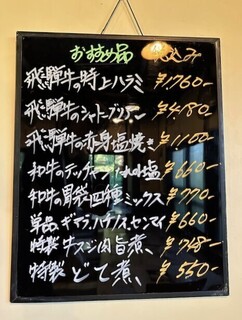 おすすめ品 込み
飛騨牛の特上ハラミ ¥1760-
飛騨牛のシャトーブリアン ¥4180-
飛騨牛の赤身塩焼き ¥1100-
和牛のテッチャン 塩 ¥660-
和牛の胃袋四種ミックス ¥770-
単品 ギアラ,ハチノス,センマイ ¥660-
特製 牛スジ肉旨煮 ¥748-
特製 どて煮 ¥550-